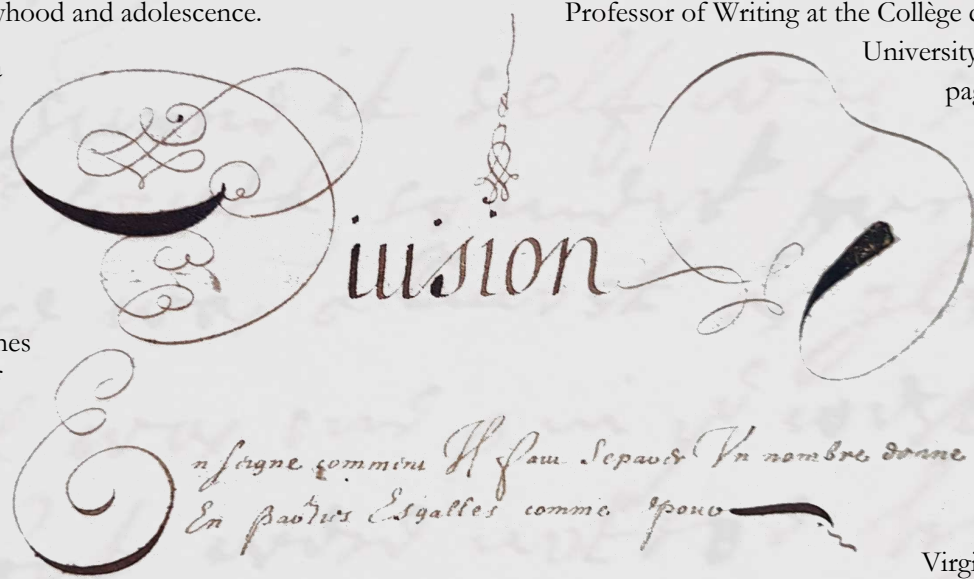 hood and adolescence.
Professor of Writing at the Collège
University
Diuision
Enseigne comment Il faut Separer Vn nombre donne
En parties Esgalles comme pour